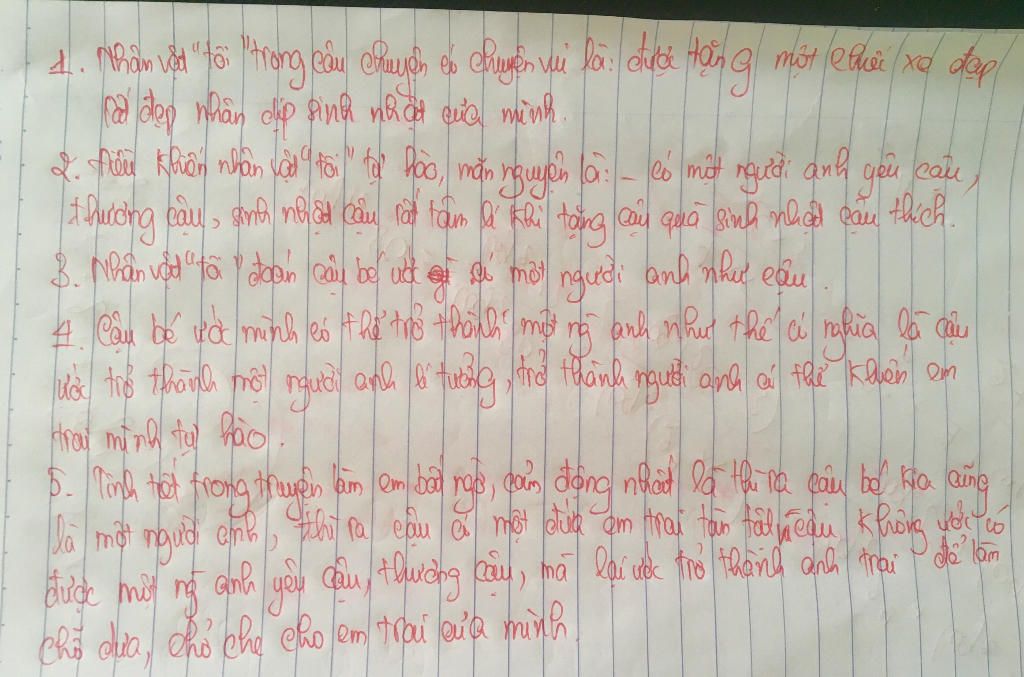 1. Nhân vật "tôi" trong câu chuyện có chuyện vui là: được tặng một chiếc xe đạp
rất đẹp nhân dịp sinh nhật của mình.
2. Điều khiến nhân vật "tôi" tự hào, mãn nguyện là: - có một người anh yêu cậu,
thương cậu, sinh nhật cậu rất tâm lí khi tặng cậu quà sinh nhật cậu thích.
3. Nhân vật "tôi" đoán cậu bé ước có một người anh như cậu.
4. Cậu bé ước mình có thể "trở thành" một ng anh như thế có nghĩa là cậu
ước trở thành một người anh lí tưởng, trở thành người anh có thể khiến em
trai mình tự hào.
5. Tình tiết trong truyện làm em bất ngờ, cảm động nhất là thì ra cậu bé kia cũng
là một người anh, thì ra cậu có một đứa em trai tàn tật, cậu không ước có
được một ng anh yêu cậu, thương cậu, mà lại ước trở thành anh trai để làm
chỗ dựa, chở che cho em trai của mình.